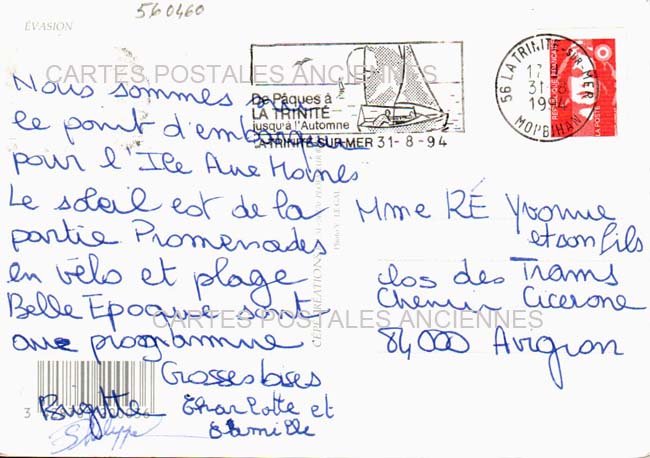 560460
EVASION
CARTES POSTALES ANCIENNES
De Pâques à
LA TRINITÉ
jusqu'à l'Automne
LA TRINITE SUR MER 31-8-94
56 LA TRINITE-SUR-MER
17
31-8
1994
MORBIHAN
REPUBLIQUE FRANÇAISE
LA POSTE
Nous sommes sur
le point d'embarquer
pour l'Ile Aux Moines
Le soleil est de la
partie Promenades
en vélo et plage
Belle Epoque sont
au programme
Grosses bises
Brigitte Charlotte et
Camille
Philippe
Mme RÉ Yvonne
et son fils
clos des Trams
Chemin Cicerone
84000 Avignon
CARTES POSTALES ANCIENNES
Photo Y. LE GAL